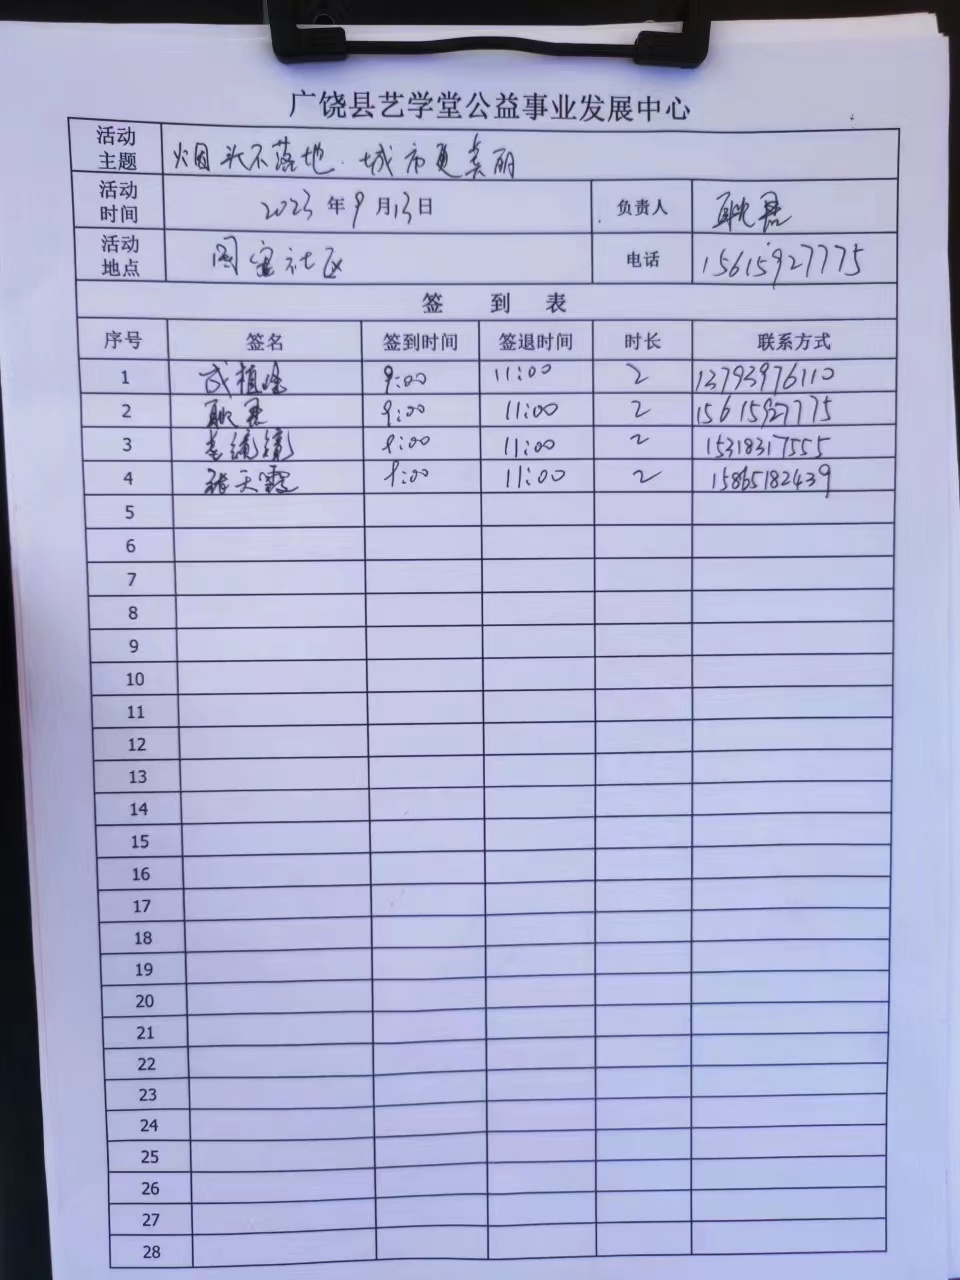 广饶县艺学堂公益事业发展中心
活动主题 烟头不落地.城市更美丽
活动时间 2023年9月13日 负责人 耿
活动地点 社区 电话 15615927775
签到表
序号 签名 签到时间 签退时间 时长 联系方式
1 9:00 11:00 2 13793976110
2 耿 9:00 11:00 2 15615927775
3 9:00 11:00 2 15318317555
4 张天霞 9:00 11:00 2 15865182439
5
6
7
8
9
10
11
12
13
14
15
16
17
18
19
20
21
22
23
24
25
26
27
28